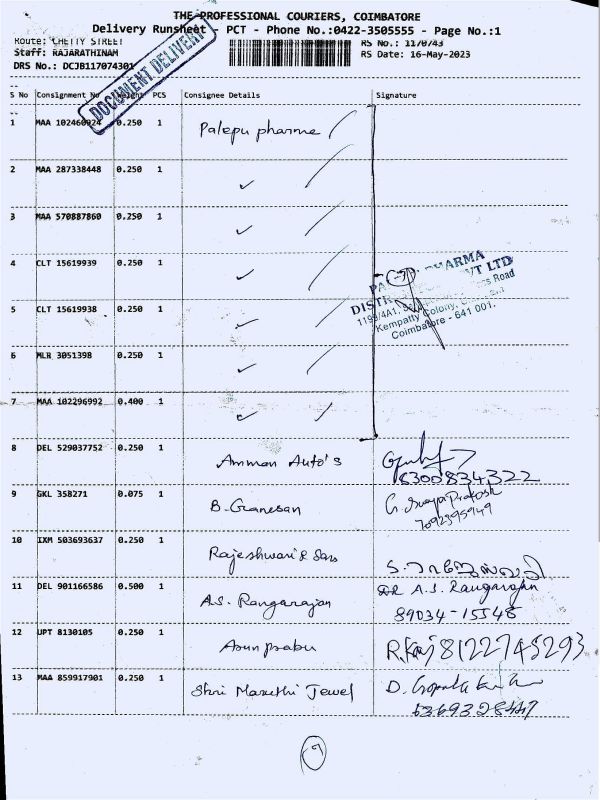 THE PROFESSIONAL COURIERS, COIMBATORE
Delivery Runsheet - PCT - Phone No.:0422-3505555 - Page No.:1
Route: CHETTY STREET
RS No.: 1170743
Staff: RAJARATHINAM
RS Date: 16-May-2023
DRS No.: DCJB117074301
DOCUMENT DELIVERY
S No Consignment No Weight PCS Consignee Details Signature
1 MAA 102460924 0.250 1 Palepu pharma
2 MAA 287338448 0.250 1
3 MAA 570887860 0.250 1
4 CLT 15619939 0.250 1
PHARMA
PVT LTD
5 CLT 15619938 0.250 1
Kempatty Colony,
Coimbatore - 641 001.
6 MLR 3051398 0.250 1
7 MAA 102296992 0.400 1
8 DEL 529037752 0.250 1 Amman Auto's
6300834322
9 GKL 358271 0.075 1 B. Ganesan G. Surya Prakash
7092395949
10 IXM 503693637 0.250 1 Rajeshwari & Sons
11 DEL 901166586 0.500 1 A.S. Rangarajan DR A.S. Rangarajan
89034-15548
12 UPT 8130105 0.250 1 Arun prabu R.Raj 8122745293
13 MAA 859917901 0.250 1 Shri Maruthi Jewel D. Gopala